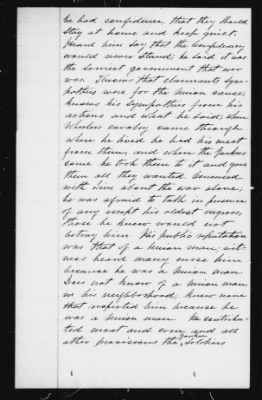 he had confidence, that they should
stay at home and keep quiet.
Heard him say that the Confederacy
would never stand; he said it was
the sorriest government that ever
was. Knows that claimants sym-
pathies were for the Union cause;
knows his sympathies from his
actions and what he said; when
Wheelers cavalry came through
where he lived he hid his meat
from them, and when the Yankees
came he took them to it and gave
them all they wanted. Conversed
with him about the war alone;
he was afraid to talk in presence
of any except his oldest negroes,
those he knew would not
betray him. His public reputation
was that of a Union man; wit-
ness heard many curse him
because he was a Union man.
Does not know of a Union man
in his neighborhood; knew none
that respected him because he
was a Union man. He contribu-
ted meat and corn and all
other provisions the Yankee Soldiers